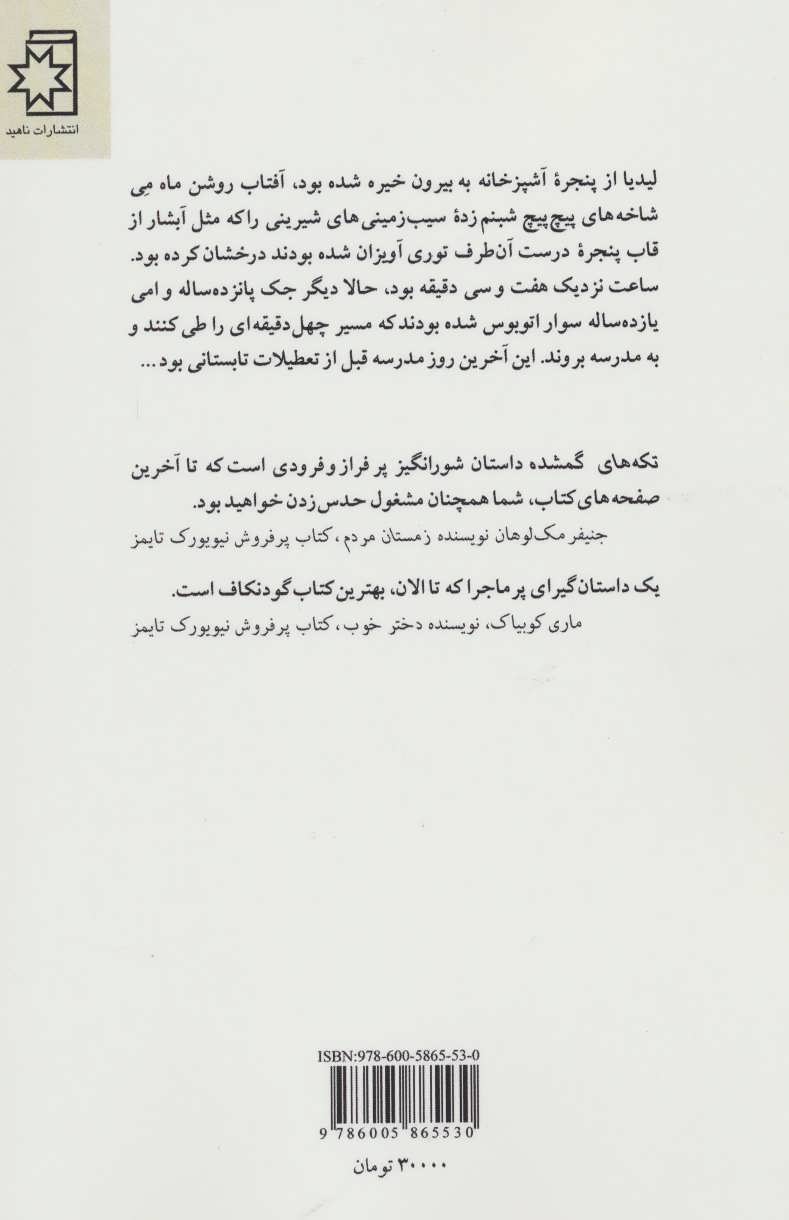 انتشارات ناهید
لیدیا از پنجرهٔ آشپزخانه به بیرون خیره شده بود، آفتاب روشن ماه می
شاخه‌های پیچ‌پیچ شبنم‌زدهٔ سیب‌زمینی‌های شیرینی را که مثل آبشار از
قاب پنجرهٔ درست آن‌طرف توری آویزان شده بودند درخشان کرده بود.
ساعت نزدیک هفت و سی دقیقه بود، حالا دیگر جک پانزده‌ساله و امی
یازده‌ساله سوار اتوبوس شده بودند که مسیر چهل‌دقیقه‌ای را طی کنند و
به مدرسه بروند. این آخرین روز مدرسه قبل از تعطیلات تابستانی بود...
تکه‌های گمشده داستان شورانگیز پر فراز و فرودی است که تا آخرین
صفحه‌های کتاب، شما همچنان مشغول حدس زدن خواهید بود.
جنیفر مک‌لوهان نویسنده زمستان مردم، کتاب پرفروش نیویورک تایمز
یک داستان گیرای پر ماجرا که تا الان، بهترین کتاب گودنکاف است.
ماری کوبیاک، نویسنده دختر خوب، کتاب پرفروش نیویورک تایمز
ISBN:978-600-5865-53-0
9 786005 865530
۳۰۰۰۰ تومان